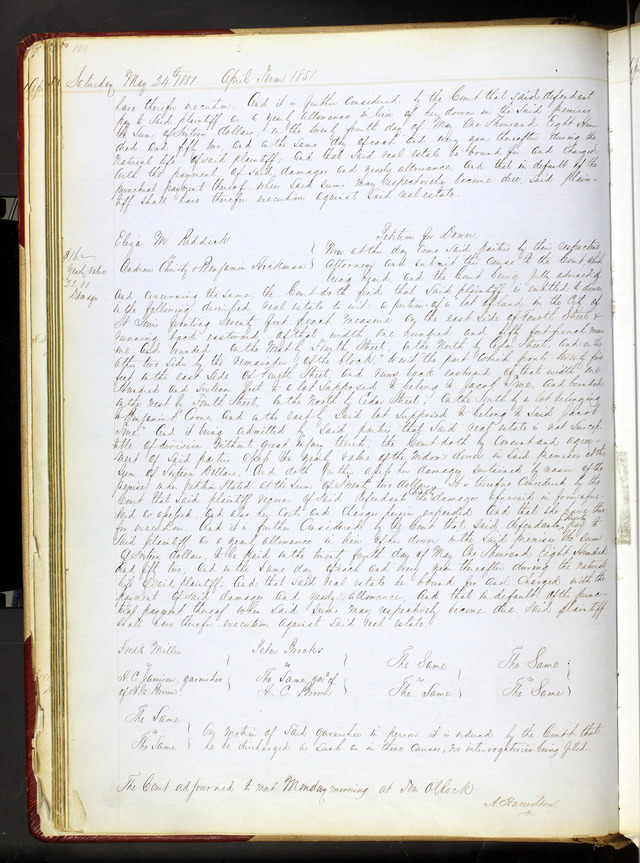 100
Saturday May 24th 1851. April Term 1851
have therefor execution. And it is further considered by the Court that said defendant
pay to said plaintiff as a yearly allowance in lieu of her dower in the said premises
the sum of Sixteen dollars, on the twenty fourth day of May One Thousand Eight Hun-
dred and fifty two, and on the same day of each and every year thereafter during the
natural life of said plaintiff; And that said real estate be bound for and charged
with the payment of said damages and yearly allowance, and that in default of the
punctual payment thereof when said sums may respectively become due, said plain-
tiff shall have therefor execution against said real estate.
Eliza M. Reddick
Petition for Dower
Andrew Christy & Benjamin Hickman
Now at this day come said parties by their respective
Attorneys and submit this cause to the Court which
being heard and the Court being fully advised of
$16
Yearly value
22,00
Damages
and concerning the same, the Court doth find that said plaintiff is entitled to dower
in the following described real estate to wit: a portion of a lot of land in the City of
St Louis fronting seventy feet french measure on the east side of Fourth Street &
running back eastwardly of that width one hundred and fifty feet french meas-
ure and bounded on the West by Fourth Street, on the North by Cedar Street, and on the
other two sides by the remainder of the block, except the part which fronts twenty five
feet on the east side of Fourth Street, and runs back eastward of that width one
hundred and sixteen feet to a lot supposed to belong to Jacob and bounded
on the West by Fourth Street, on the North by Cedar Street, on the South by a lot belonging
to Benjamin and on the east by said lot supposed to belong to said Jacob
And it being admitted by said parties that said real estate is not suscep-
tible of division without great injury thereto, the Court doth by consent and agree-
ment of said parties assess the yearly value of the widow's dower in said premises at the
sum of Sixteen Dollars. And doth further assess her damages sustained by reason of the
premises in her petition stated at the sum of Twenty two dollars. It is therefore Considered by the
Court that said plaintiff recover of said defendant Christy the damages aforesaid in form afore-
said so assessed, and also her costs and charges herein expended and that she have there-
for execution. And it is further Considered by the Court that said defendant Christy pay to
said plaintiff as a yearly allowance in lieu of her dower in the said premises the sum
of Sixteen dollars, to be paid on the twenty fourth day of May One Thousand Eight Hundred
and fifty two, and on the same day of each and every year thereafter during the natural
life of said plaintiff; And that said real estate be bound for and charged with the
payment of said damages and yearly allowance, and that in default of the punc-
tual payment thereof when said sums may respectively become due said plaintiff
shall have therefor execution against said real estate.
Fredk Miller
Peter Brooks
The Same
The Same
vs
H. C. Jamison, garnishee
of H. C. Brown
The Same, gar. of
H. C. Brown
The Same
The Same
The Same
vs
The Same
On motion of said garnishee in person it is ordered by the Court that
he be discharged as such as in these causes, no interrogatories being filed.
The Court adjourned to meet Monday morning at Ten O'Clock
A. Hamilton.